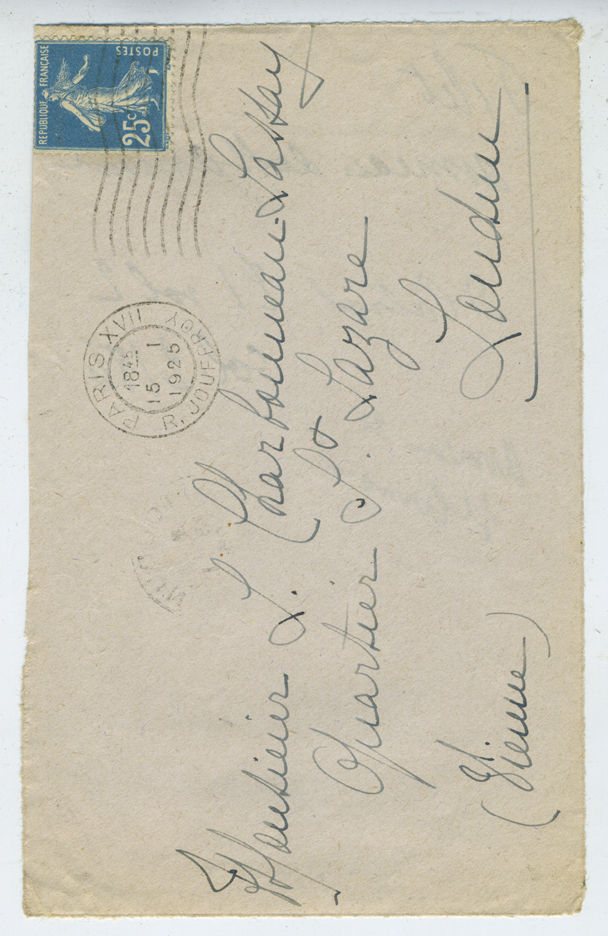 REPUBLIQUE FRANÇAISE
POSTES
25c
PARIS XVII
18 45
15 1
1925
R. JOUFFROY
Monsieur L. Charbonneau-Lassay
Quartier St Lazare
Loudun
(Vienne)